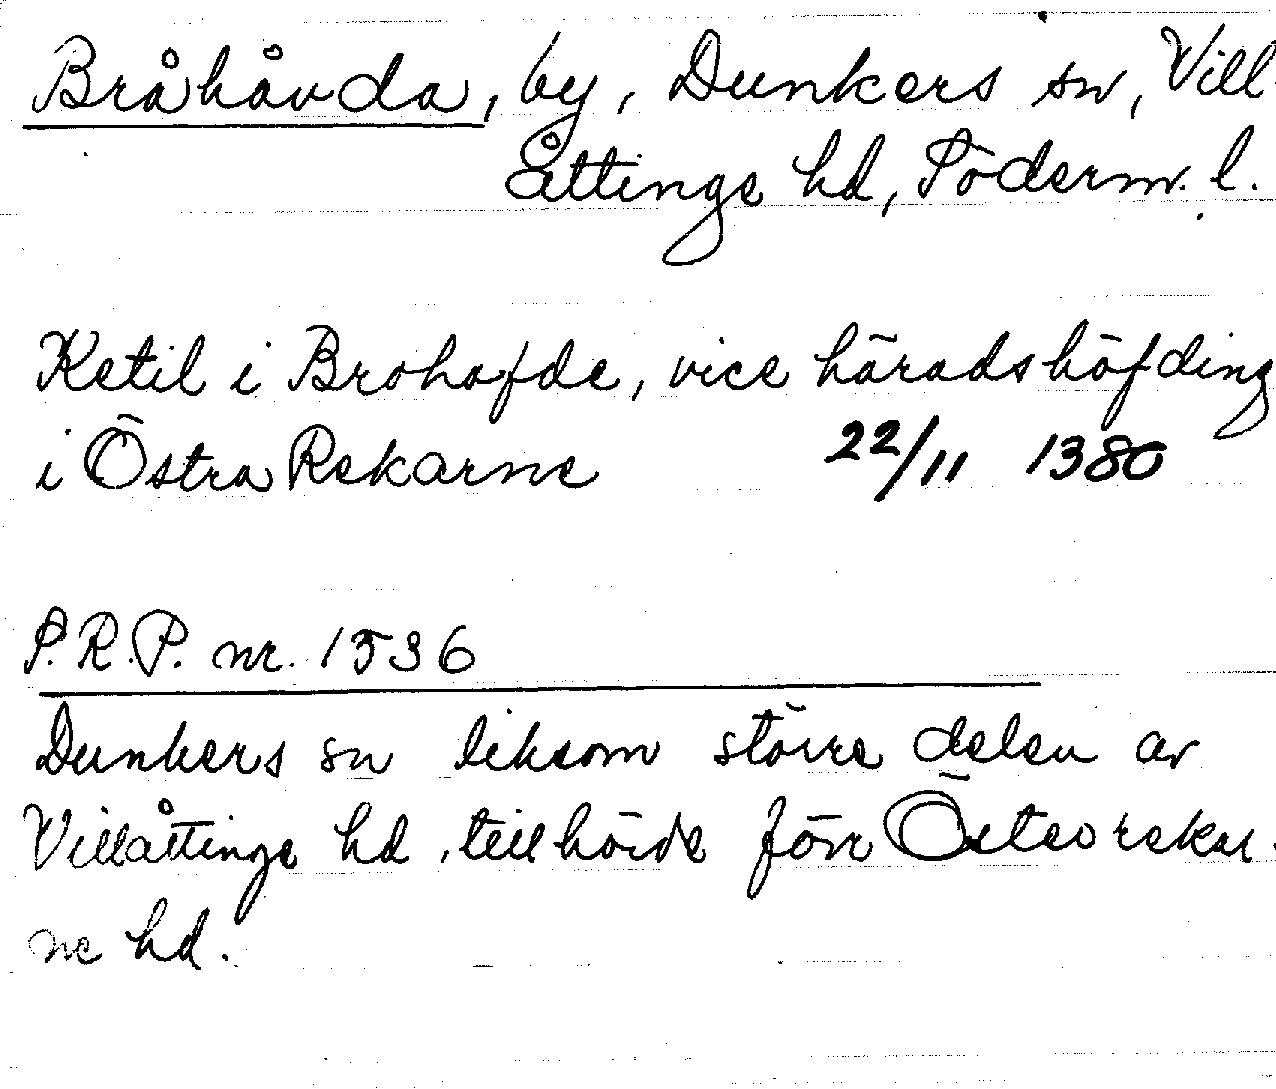 Bråhåvda, by, Dunkers sn, Vill
åttinge hd, Söderm. l.
Ketil i Brohafde, vice häradshöfding
i Östra Rekarne 22/11 1380
S.R.P. nr. 1536
Dunkers sn liksom större delen av
Villåttinge hd, tillhörde förr Österrekar
ne hd.